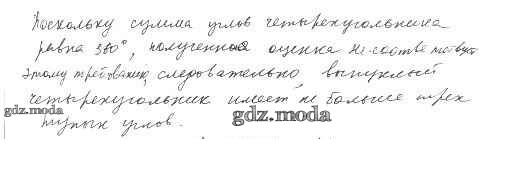 Поскольку сумма углов четырехугольника
равна 360°, полученная оценка не соответствует
этому требованию, следовательно, выпуклый
четырехугольник имеет не больше трех
gdz.moda gdz.moda
тупых углов.